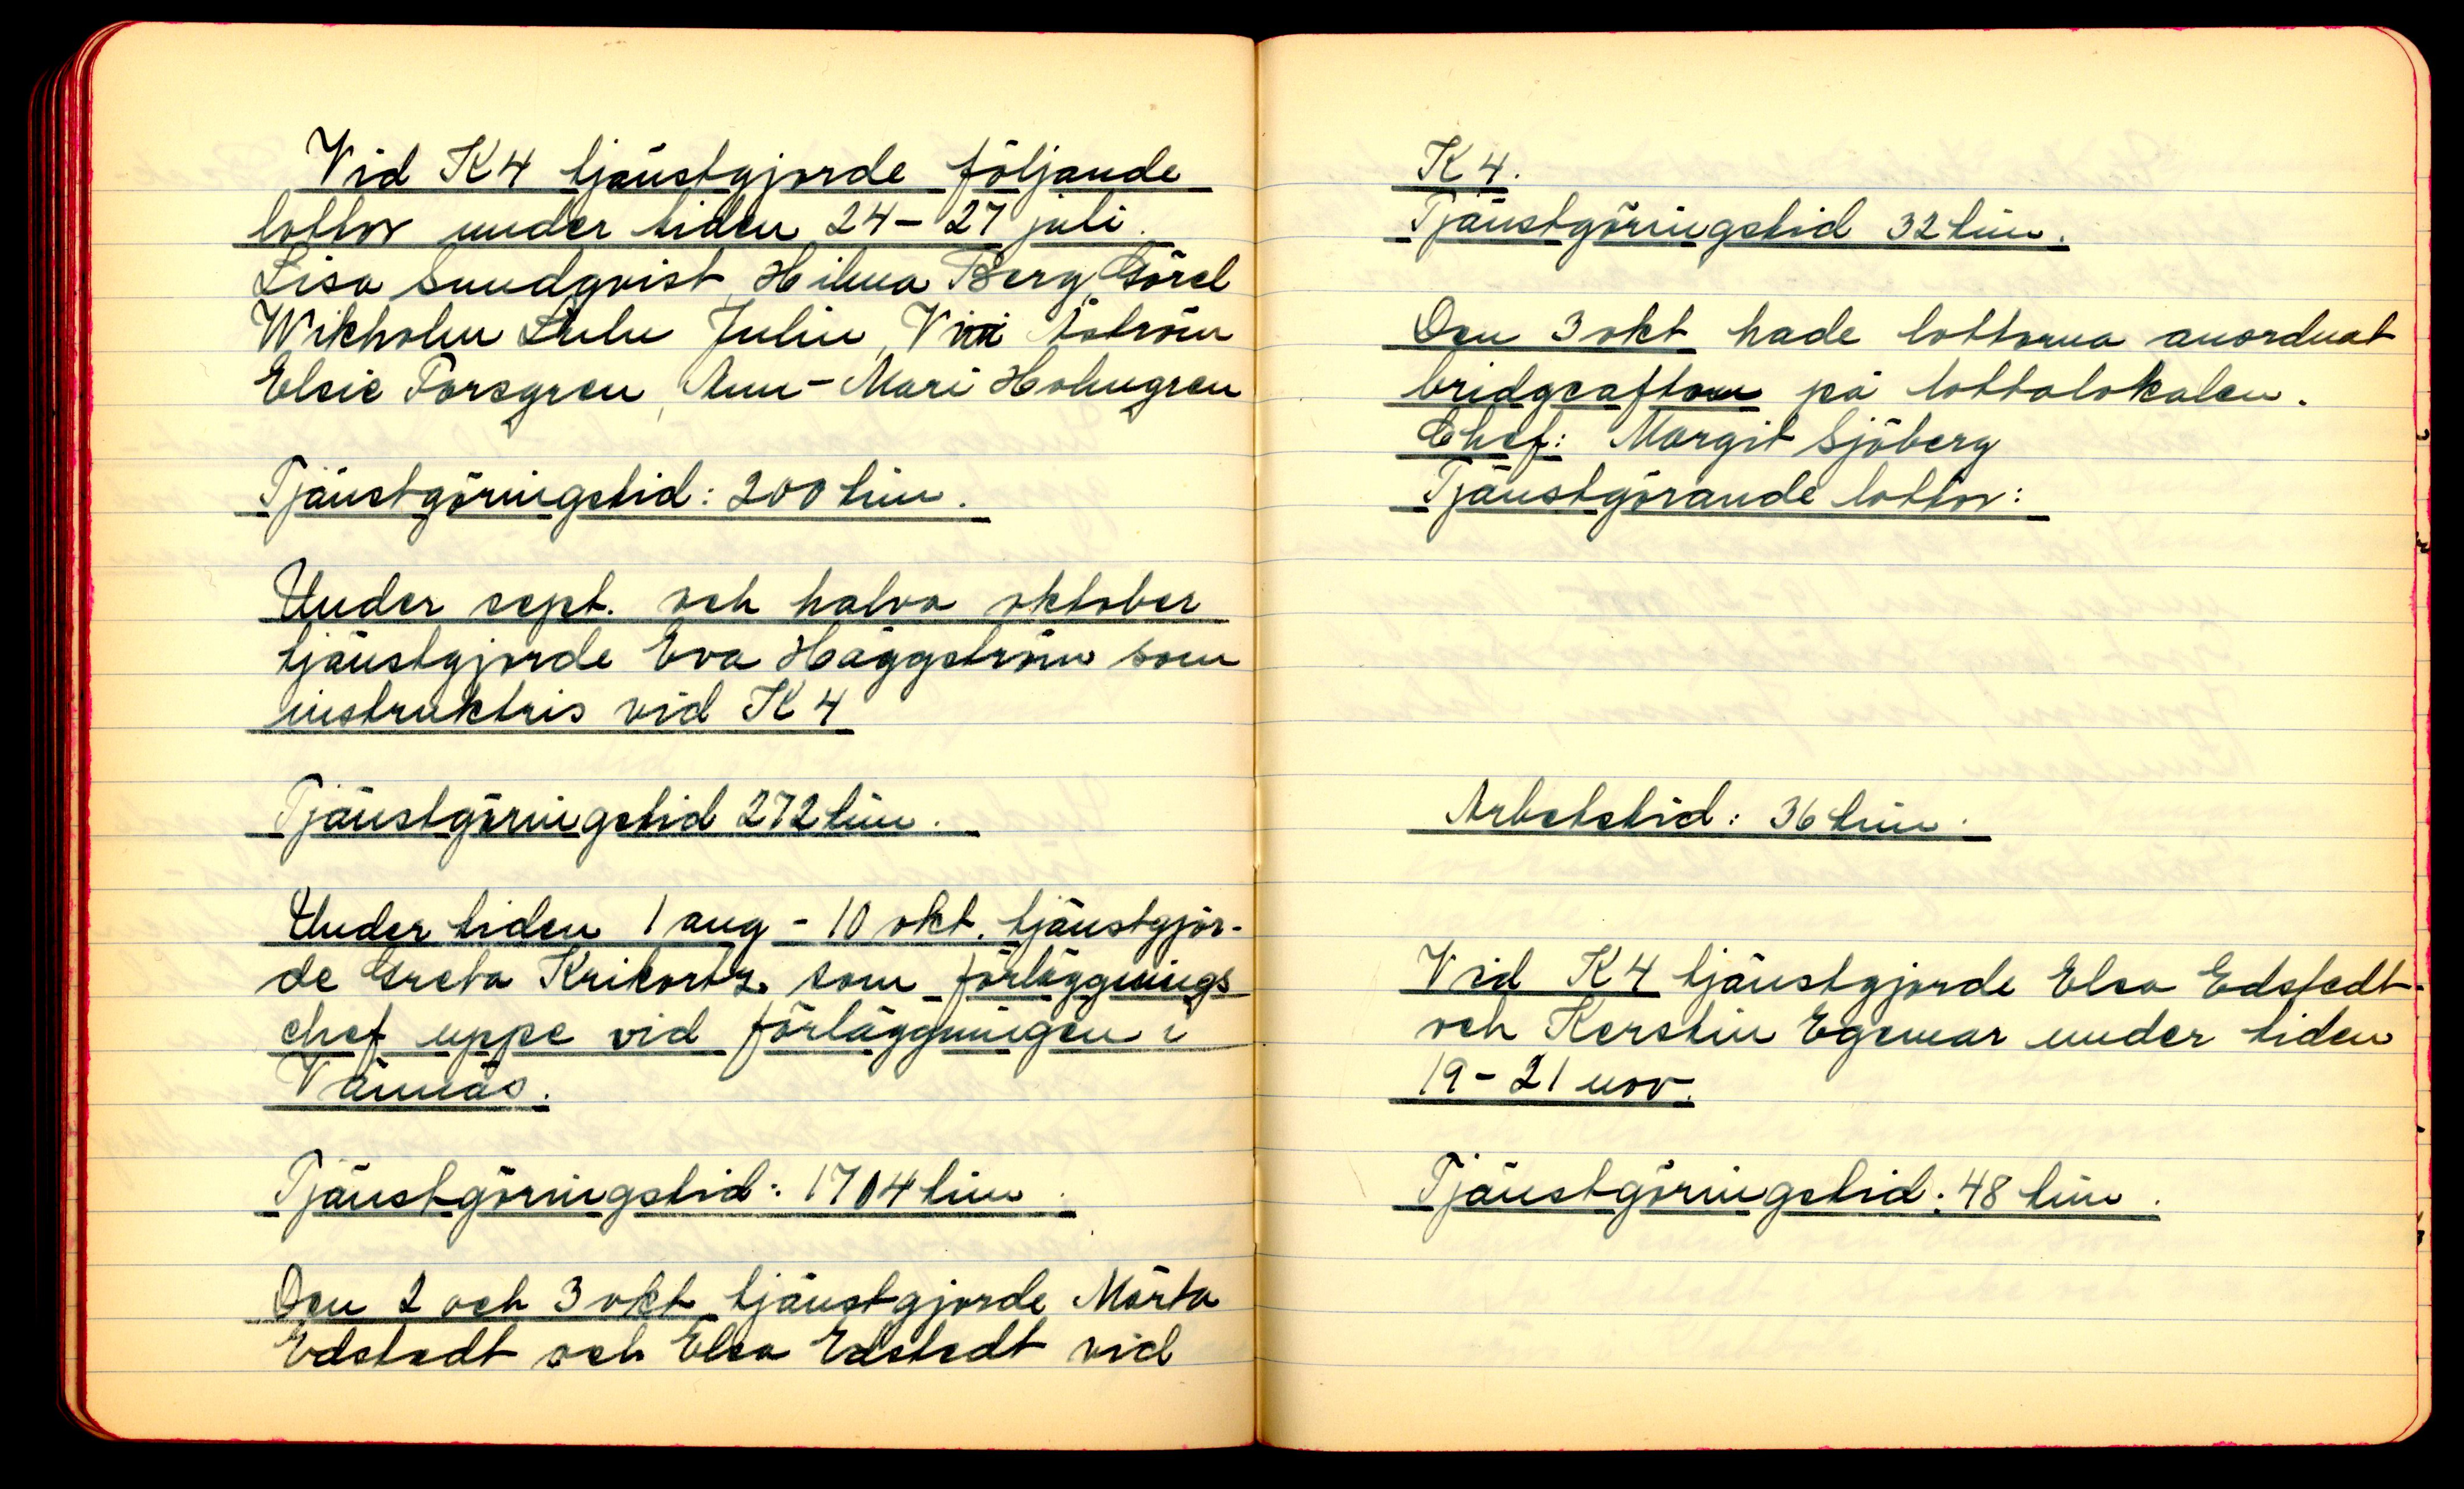 Vid K4 tjänstgjorde följande
lottor under tiden 24–27 juli.
Lisa Sundqvist, Hilma Berg, Görel
Wikholm Lulu Julin, Viví Åström
Elsie Forsgren, Ann-Mari Holmgren
Tjänstgöringstid: 200 tim.
Under sept. och halva oktober
tjänstgjorde Eva Häggström som
instruktris vid K4
Tjänstgöringstid 272 tim.
Under tiden 1 aug – 10 okt. tjänstgjor-
de Greta Krikortz som förläggnings
chef uppe vid förläggningen i
Vännäs.
Tjänstgöringstid: 1704 tim.
Den 2 och 3 okt tjänstgjorde Märta
Edstedt och Elsa Edstedt vid
K4.
Tjänstgöringstid 32 tim.
Den 3 okt hade lottorna anordnat
bridgeafton på lottalokalen.
Chef: Margit Sjöberg
Tjänstgörande lottor:
Arbetstid: 36 tim.
Vid K4 tjänstgjorde Elsa Edstedt
och Kerstin Egemar under tiden
19–21 nov.
Tjänstgöringstid: 48 tim.